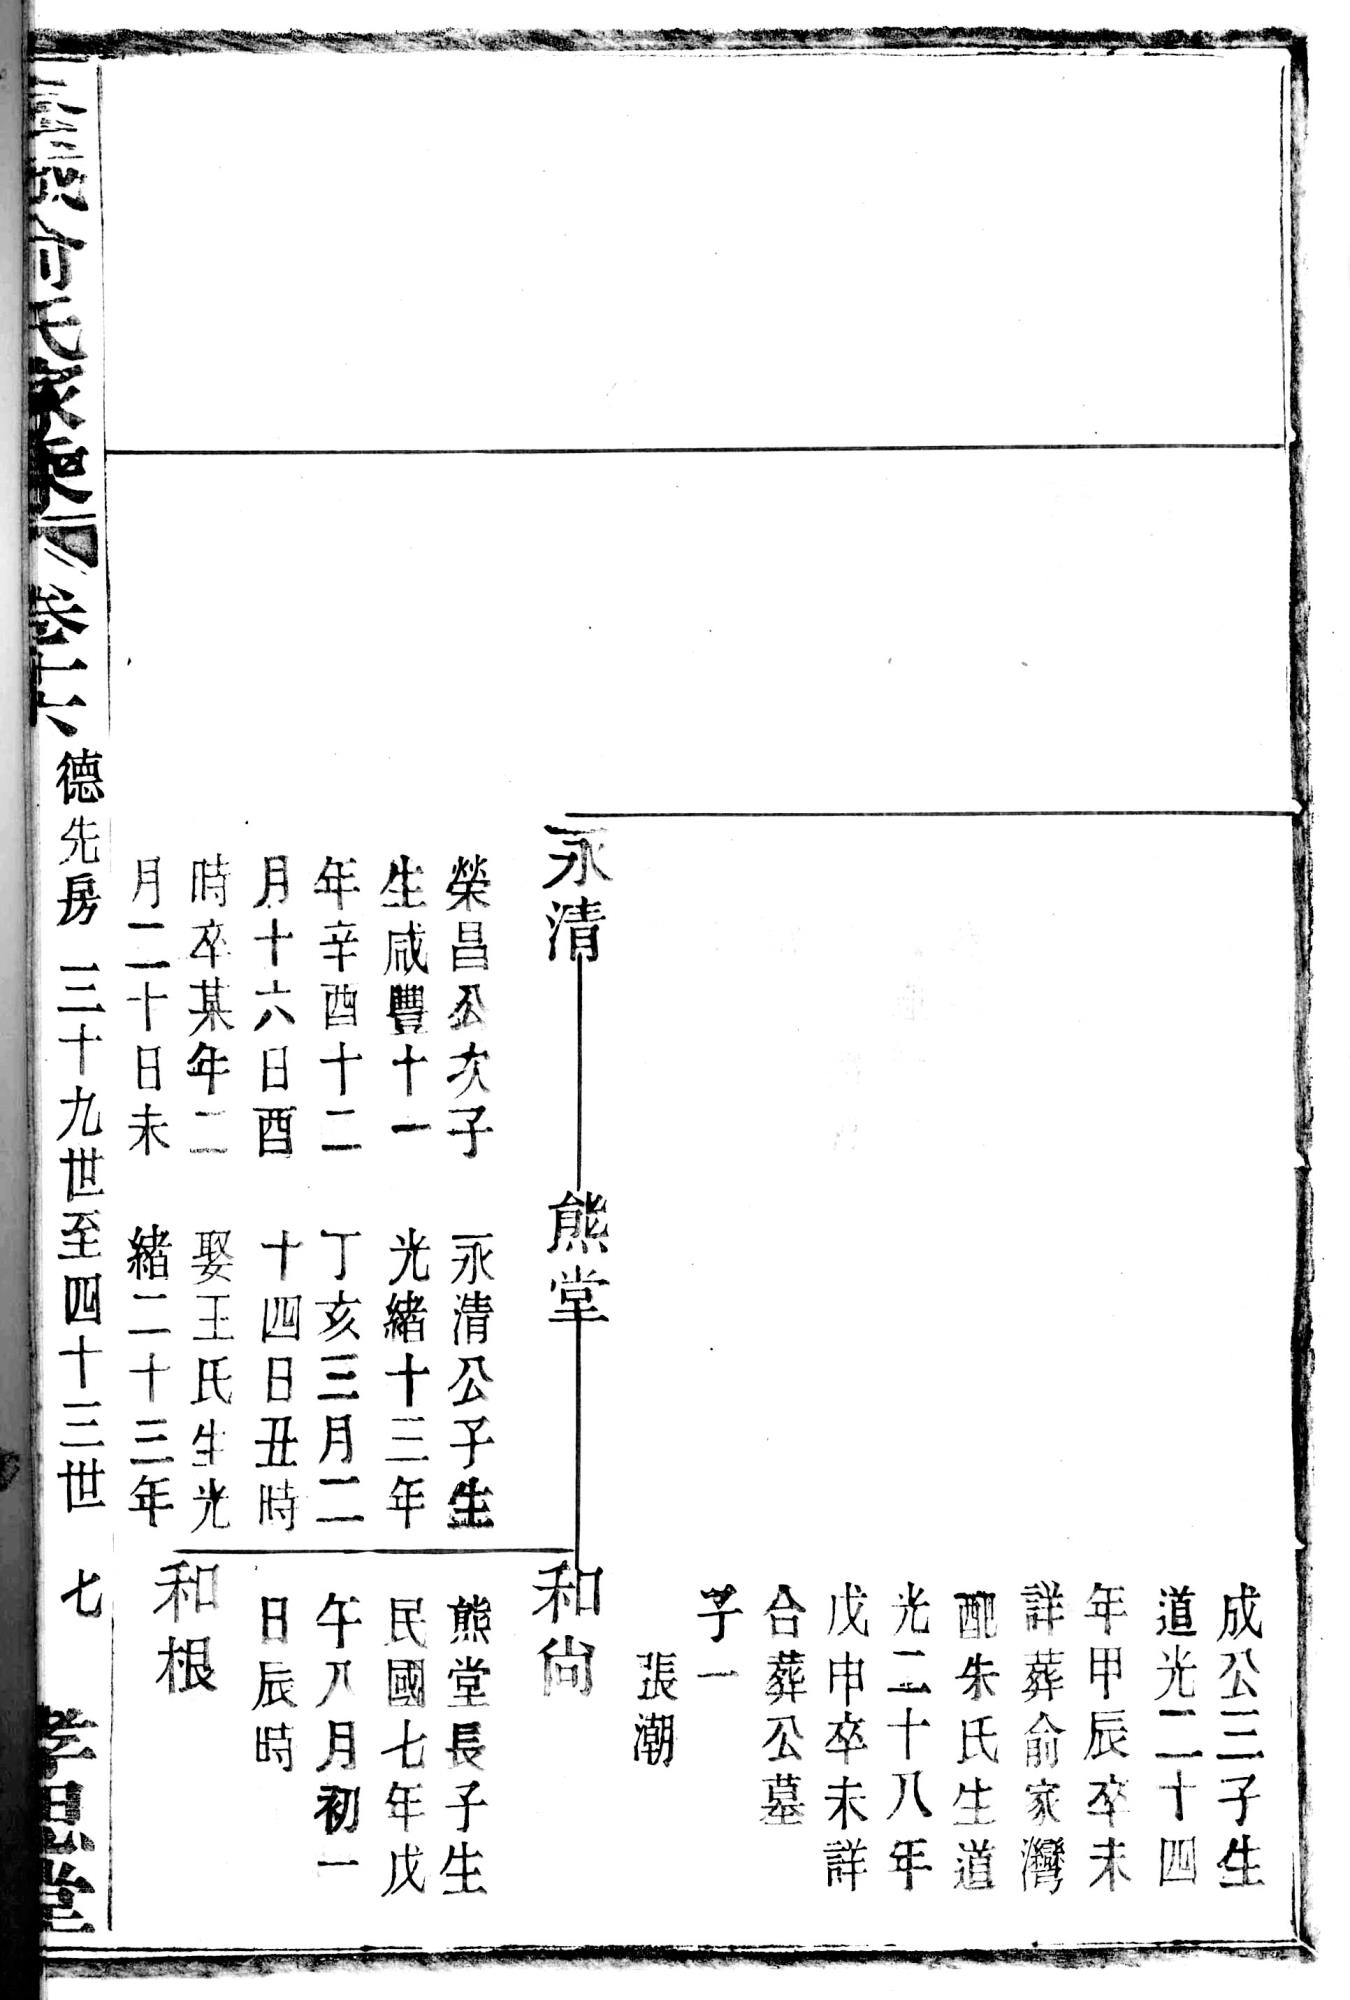 成公三子生
道光二十四
年甲辰卒未
詳葬俞家灣
配朱氏生道
光二十八年
戊申卒未詳
合葬公墓
子一
張潮
永清
榮昌公次子
生咸豐十一
年辛酉十二
月十六日酉
時卒某年二
月二十日未
熊堂
永清公子生
光緒十三年
丁亥三月二
十四日丑時
娶王氏生光
緒二十三年
和尙
熊堂長子生
民國七年戊
午八月初一
日辰時
和根
俞氏家乘 卷十六 德先房 三十九世至四十三世 七 孝思堂